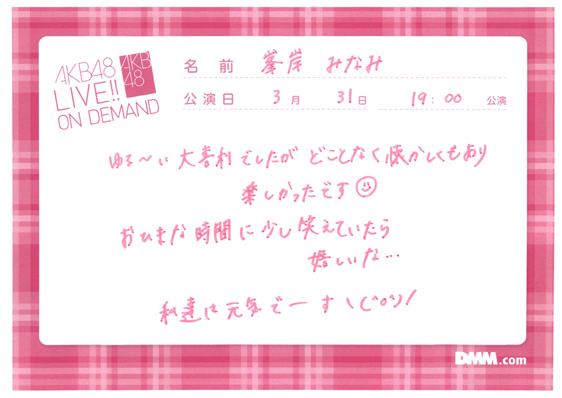 AKB48
LIVE!!
ON DEMAND
AKB
48
名前 峯岸 みなみ
公演日 3月 31日 19:00 公演
ゆる〜い 大喜利でしたが どことなく懐かしくもあり
楽しかったです☺
おひまな時間に少し笑えていたら
嬉しいな…
私達は元気でーすヽ(°o°)/
DMM.com